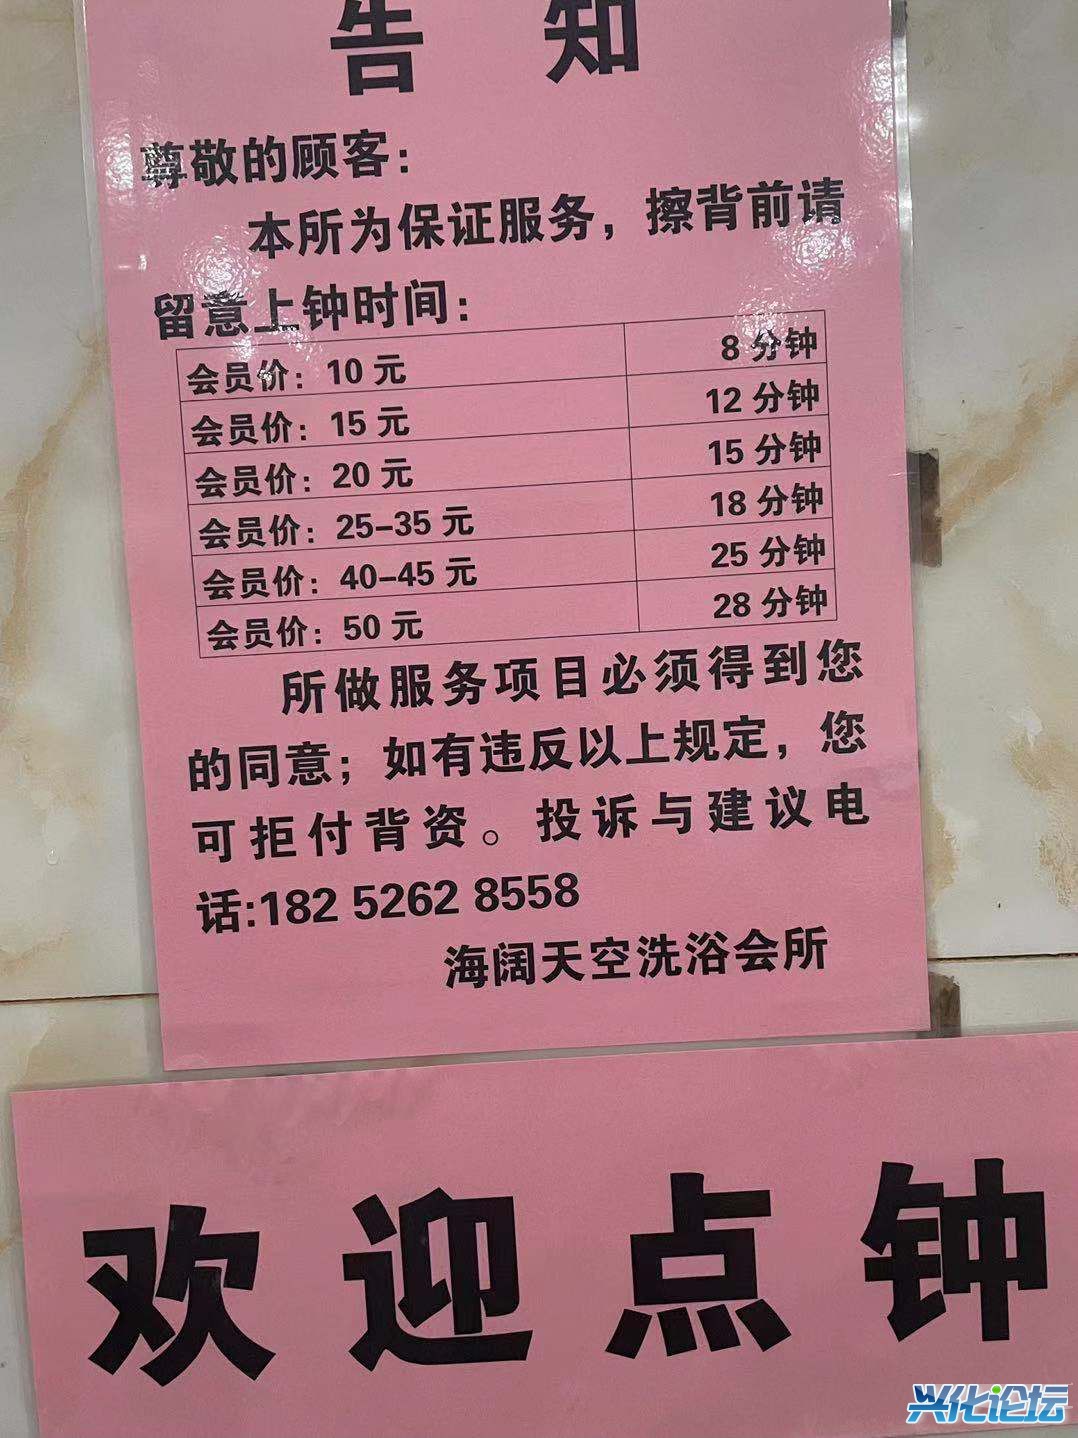 告 知
尊敬的顾客：
本所为保证服务，擦背前请
留意上钟时间：
会员价：10 元 8 分钟
会员价：15 元 12 分钟
会员价：20 元 15 分钟
会员价：25-35 元 18 分钟
会员价：40-45 元 25 分钟
会员价：50 元 28 分钟
所做服务项目必须得到您
的同意；如有违反以上规定，您
可拒付背资。投诉与建议电
话:182 5262 8558
海阔天空洗浴会所
欢迎点钟
兴化论坛